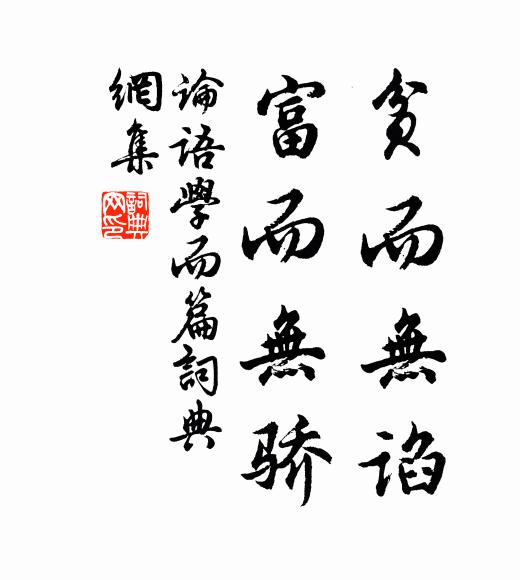 貧而無谄
富而無骄
論語學而篇詞典
網集
詞典
网印